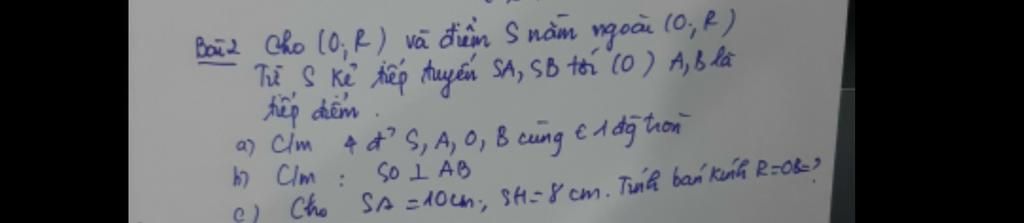 Bài 2 Cho (O; R) và điểm S nằm ngoài (O; R)
Từ S kẻ tiếp tuyến SA, SB tới (O) A, B là
tiếp điểm.
a) C/m 4 đ' S, A, O, B cùng ∈ 1 đg tròn
b) C/m : SO ⊥ AB
c) Cho SA = 10cm, SH = 8 cm. Tính bán kính R=OB=?